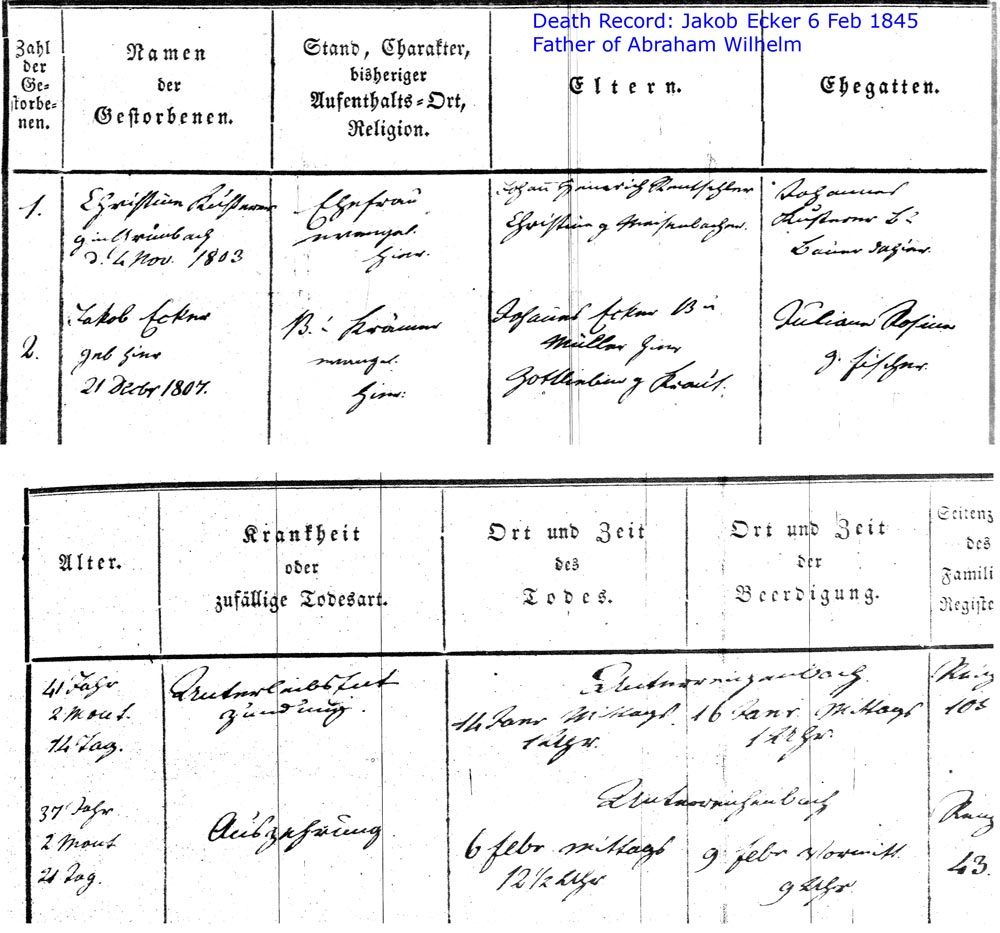 Death Record: Jakob Ecker 6 Feb 1845
Father of Abraham Wilhelm
Zahl
der
Ge-
storbe-
nen.
Namen
der
Gestorbenen.
Stand, Charakter,
bisheriger
Aufenthalts-Ort,
Religion.
Eltern.
Ehegatten.
1.
Christine Kusterer
g in Grünbach
d. 4 Nov. 1803
Ehefrau
evangel.
hier.
Johann Heinrich Rentschler
Christine g Meisenbacher.
Johannes
Kusterer B:
Bauer dahier.
2.
Jakob Ecker
geb hier
21 Decbr 1807.
B: Krämer
evangel.
hier:
Johannes Ecker B u
Müller hier
Gottliebin g Kraut.
Juliane Rosine
g. Fischer.
Alter.
Krankheit
oder
zufällige Todesart.
Ort und Zeit
des
Todes.
Ort und Zeit
der
Beerdigung.
Seitenz
des
Famili
Registe
41 Jahr
2 Mont.
14 Tag.
Unterleibsent
zündung.
Unterreichenbach
14 Janr Mittags.
1 Uhr.
16 Janr. Mittags
1 Uhr.
103
37 Jahr
2 Mont
21 Tag.
Auszehrung
Unterreichenbach
6 Febr mittags
12 1/2 Uhr
9 Febr Vormitt.
9 Uhr.
43.